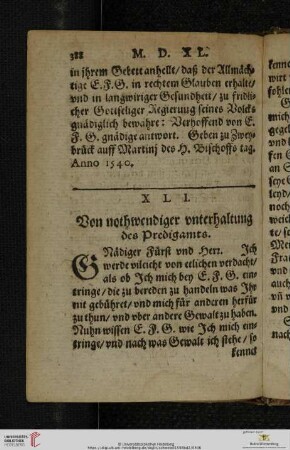 388 M. D. XL.
in jhrem Gebett anhellt/ daß der Allmäch-
tige E. F. G. in rechtem Glauben erhalte/
vnd in langwiriger Gesundheit/ zu fridli-
cher Gottseliger Regierung seines Volcks
gnädiglich bewahre: Verhoffend von E.
F. G. gnädige antwort. Geben zu Zwey-
brück auff Martinj des H. Bischoffs tag.
Anno 1540.
XLI.
Von nothwendiger vnterhaltung
des Predigamts.
GNädiger Fürst vnd Herr. Ich
werde vileicht von etlichen verdacht/
als ob Ich mich bey E. F. G. ein-
tringe/ die zu bereden zu handeln was Ihr
nit gebühret/ vnd mich für anderen herfür
zu thun/ vnd vber andere Gewalt zu haben.
Nuhn wissen E. F. G. wie Ich mich ein-
tringe/ vnd nach was Gewalt ich stehe/ so
kennet
UNIVERSITÄTS-
BIBLIOTHEK
HEIDELBERG
© Universitätsbibliothek Heidelberg